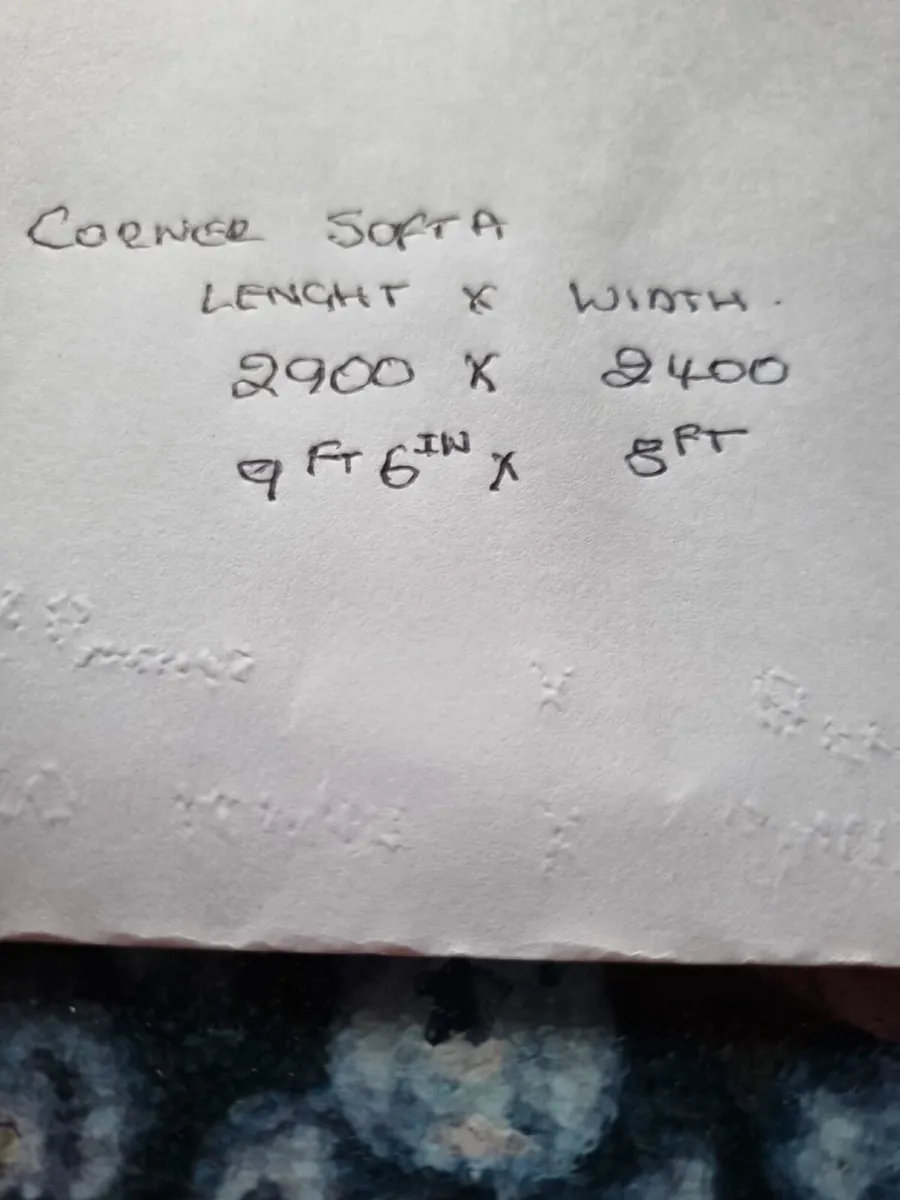 CORNER SOFTA
LENGHT X WIDTH.
2900 X 2400
9 FT 6 IN X 8 FT